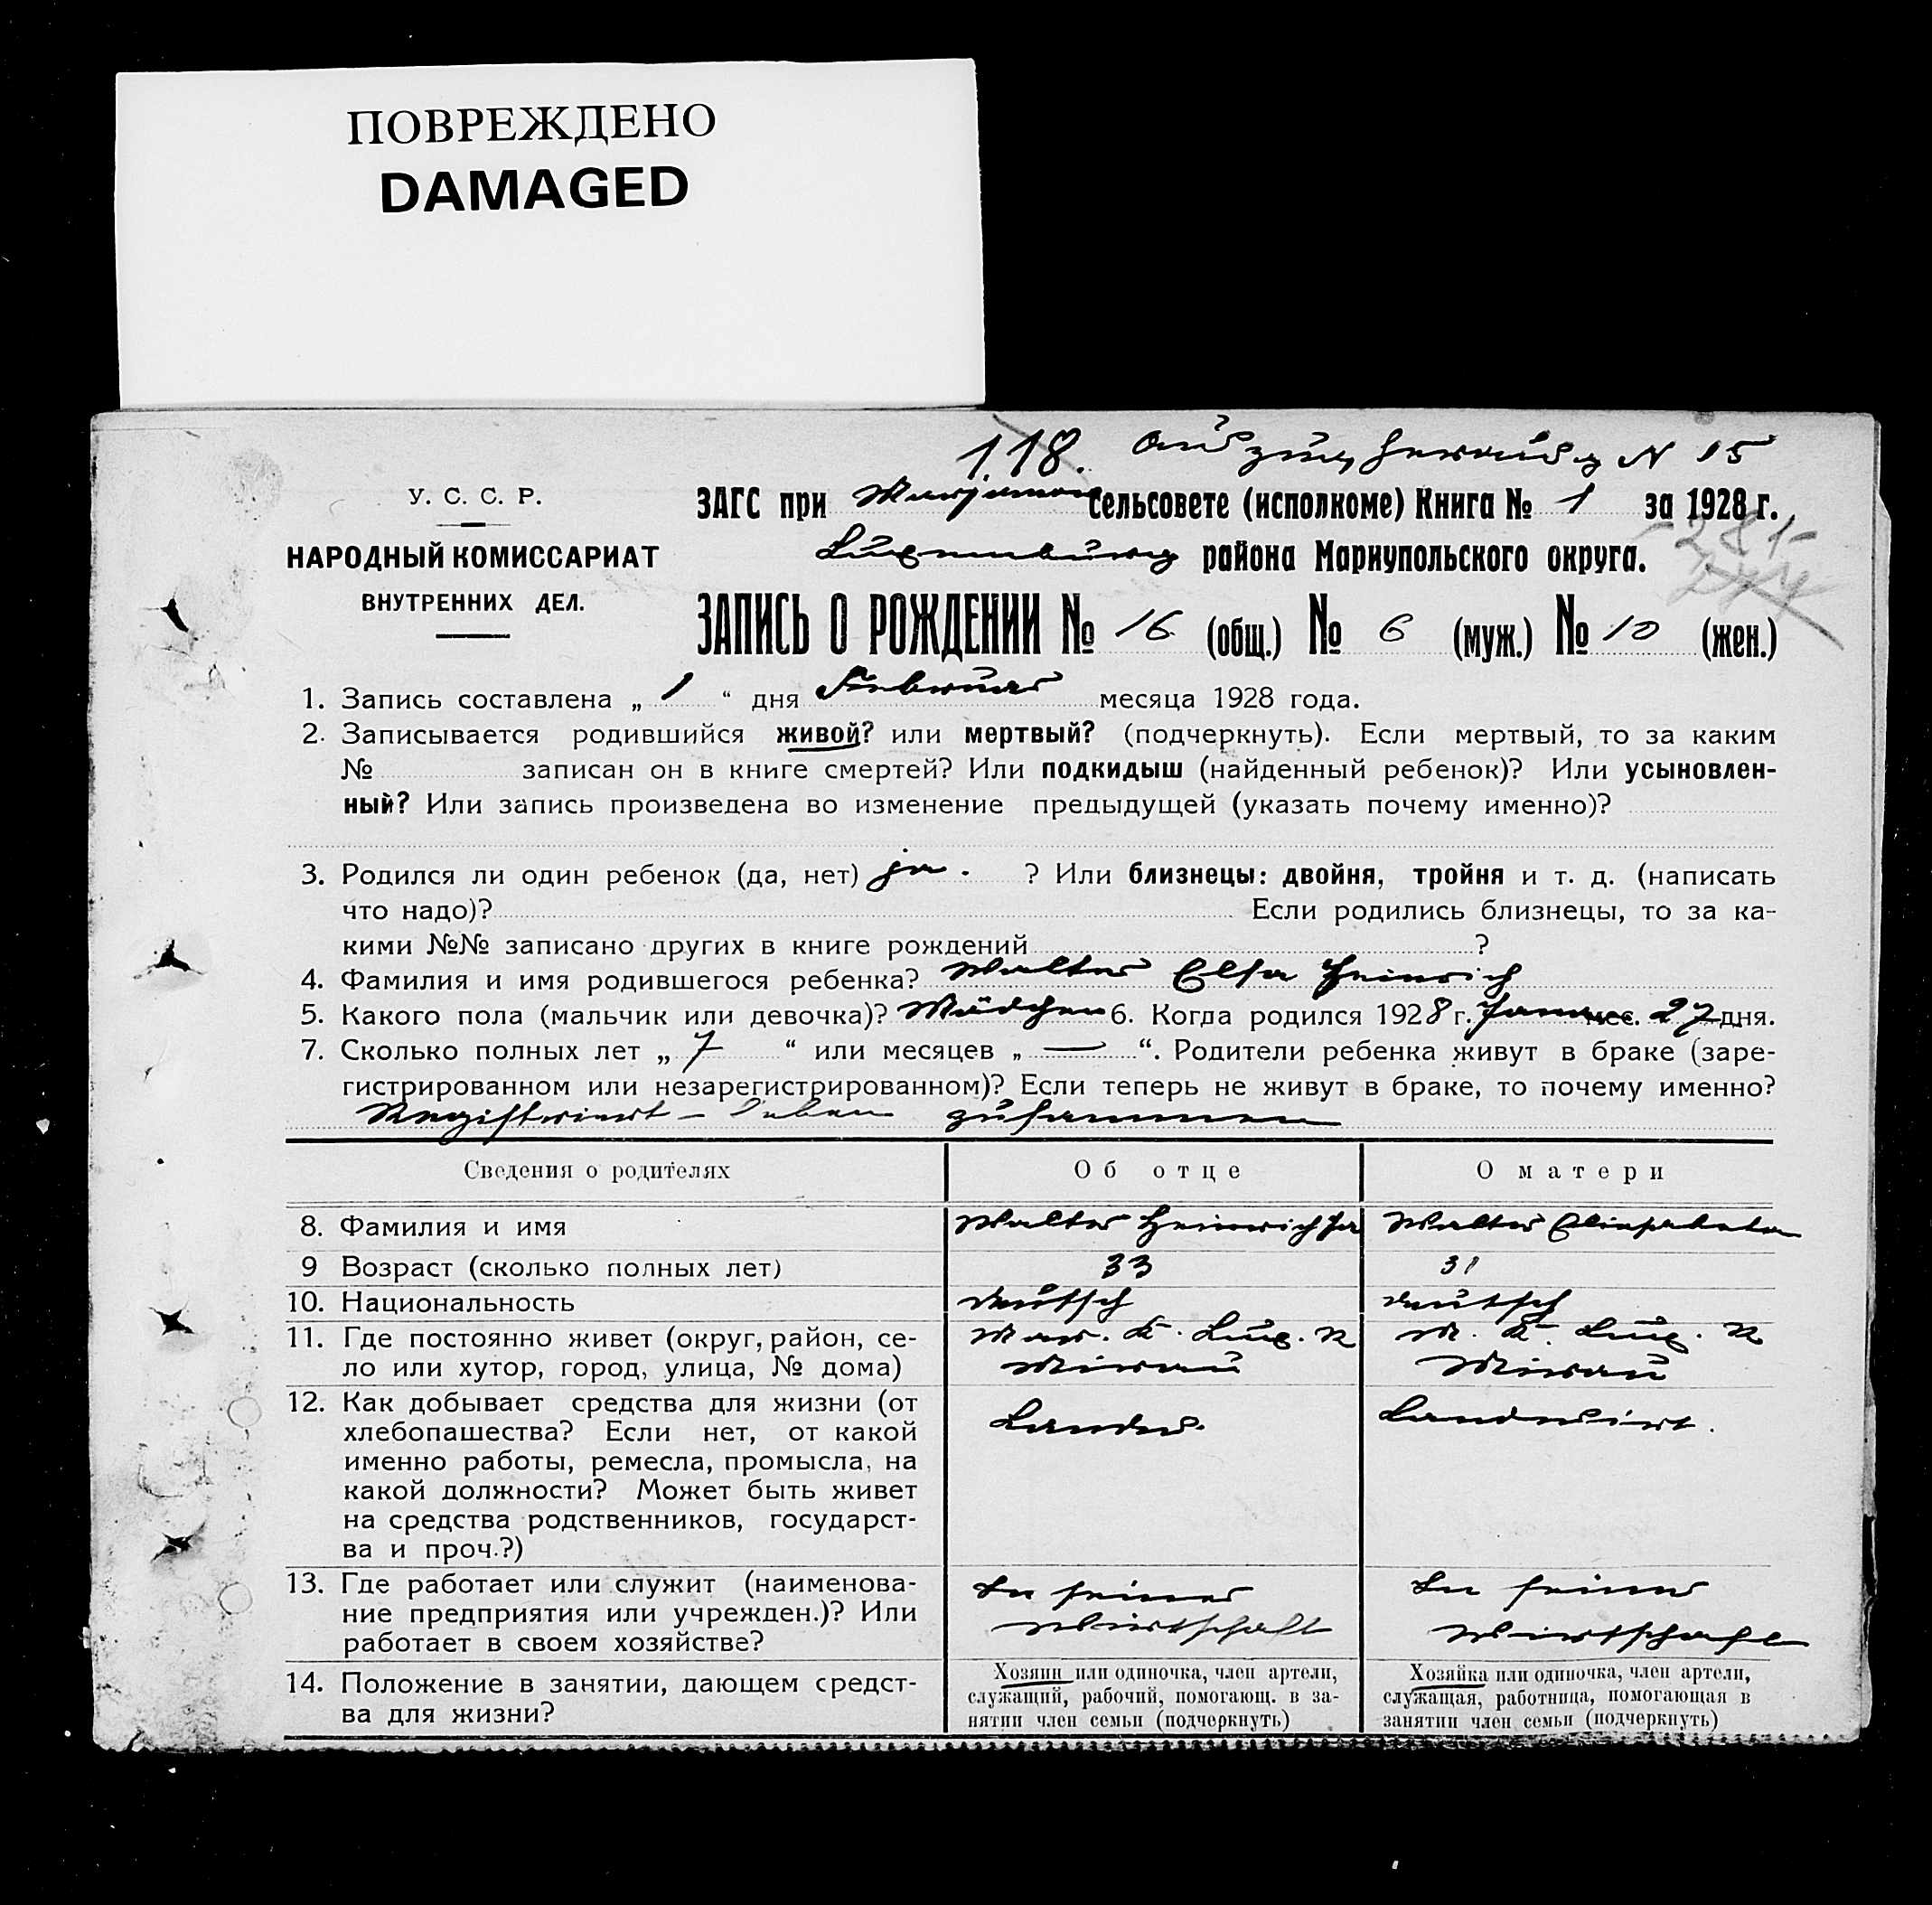 ПОВРЕЖДЕНО
DAMAGED
118. Auszug N 15
У. С. С. Р.
ЗАГС при сельсовете (исполкоме) Книга № 1 за 1928 г.
- 281 -
НАРОДНЫЙ КОМИССАРИАТ
Luxemburg района Мариупольского округа.
ВНУТРЕННИХ ДЕЛ.
ЗАПИСЬ О РОЖДЕНИИ № 16 (общ.) № 6 (муж.) № 10 (жен.)
1. Запись составлена „ 1 “ дня Februar месяца 1928 года.
2. Записывается родившийся живой? или мертвый? (подчеркнуть). Если мертвый, то за каким
№ записан он в книге смертей? Или подкидыш (найденный ребенок)? Или усыновлен-
ный? Или запись произведена во изменение предыдущей (указать почему именно)?
3. Родился ли один ребенок (да, нет) ja. ? Или близнецы: двойня, тройня и т. д. (написать
что надо)? Если родились близнецы, то за ка-
кими №№ записано других в книге рождений ?
4. Фамилия и имя родившегося ребенка? Walter Elsa Heinrich
5. Какого пола (мальчик или девочка)? Mädchen 6. Когда родился 1928 г. Januar мес. 27 дня.
7. Сколько полных лет „ 7 “ или месяцев „ — “. Родители ребенка живут в браке (заре-
гистрированном или незарегистрированном)? Если теперь не живут в браке, то почему именно?
Registriert - leben zusammen
Сведения о родителях Об отце О матери
8. Фамилия и имя Walter Heinrich Ja Walter Elisabeta
9 Возраст (сколько полных лет) 33 31
10. Национальность deutsch deutsch
11. Где постоянно живет (округ, район, се- Mar. K. Lux. R M. K. Lux. R
ло или хутор, город, улица, № дома) Mirau Mirau
12. Как добывает средства для жизни (от Landw. Landwirt.
хлебопашества? Если нет, от какой
именно работы, ремесла, промысла, на
какой должности? Может быть живет
на средства родственников, государст-
ва и проч.?)
13. Где работает или служит (наименова- In seiner In seiner
ние предприятия или учрежден.)? Или Wirtschaft Wirtschaft
работает в своем хозяйстве?
14. Положение в занятии, дающем средст-
ва для жизни?
Хозяин или одиночка, член артели,
служащий, рабочий, помогающ. в за-
нятии член семьи (подчеркнуть)
Хозяйка или одиночка, член артели,
служащая, работница, помогающая в
занятии член семьи (подчеркнуть)